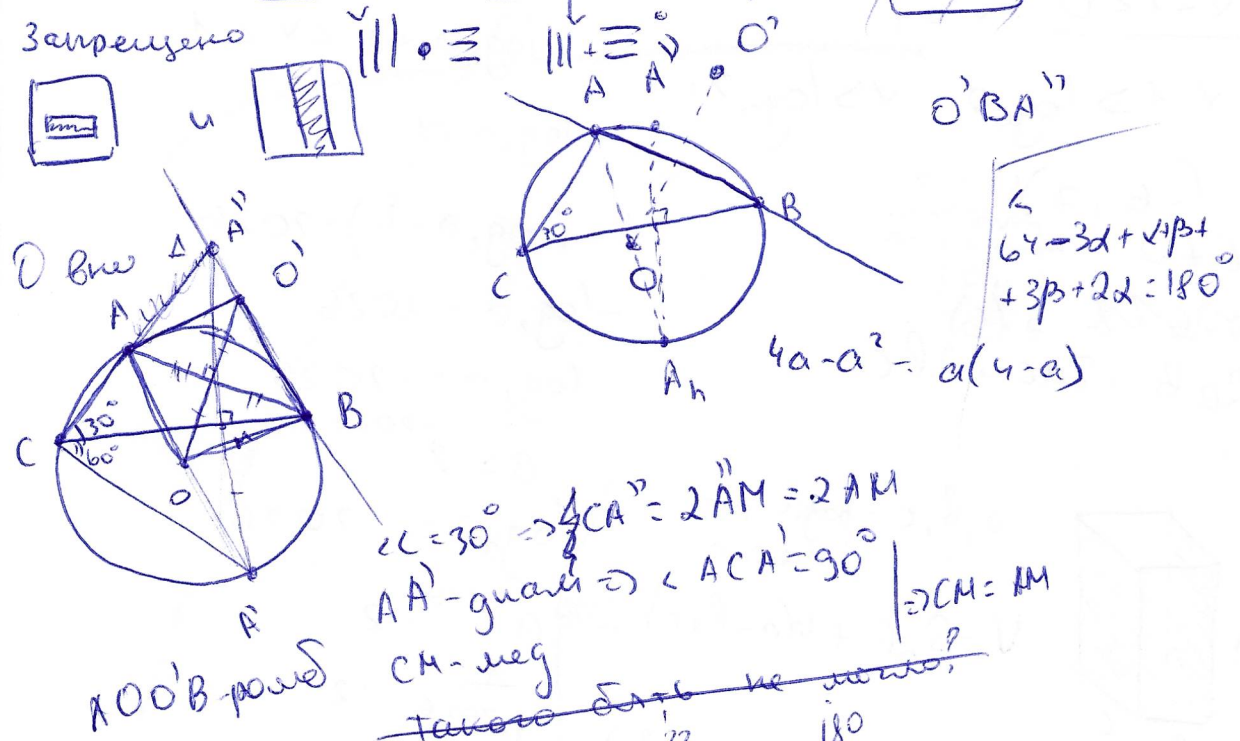 Запрещено
и
A
A''
O'
O'BA''
30°
C
B
O
A_h
64-3α+α+β+
+3β+2α=180°
4a-a² = a(4-a)
O вне Δ
A''
O'
A
B
C
30°
60°
O
A'
<C=30° => CA''=2A''M=2AM
AA'-диам => < ACA'=90°
=> CM=AM
CM-мед
AOO'B-ромб
такого быть не могло?
180